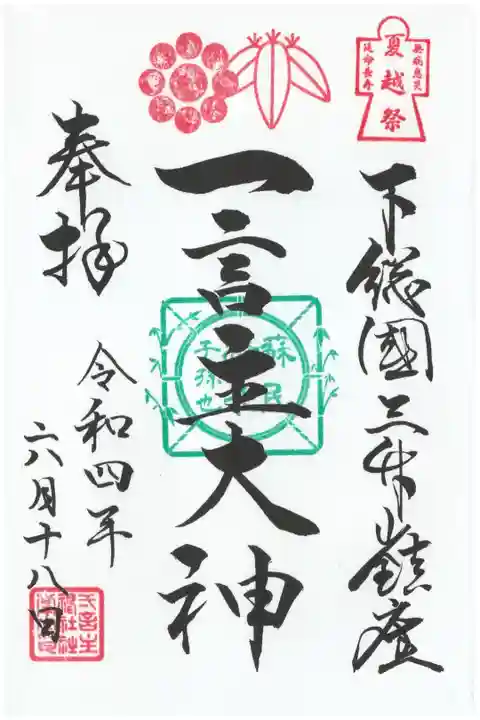 夏越祭
無病息災
延命長寿
下総國三竹山鎮座
一言主大神
蘇民
子孫也
奉拝
令和四年
六月十八日